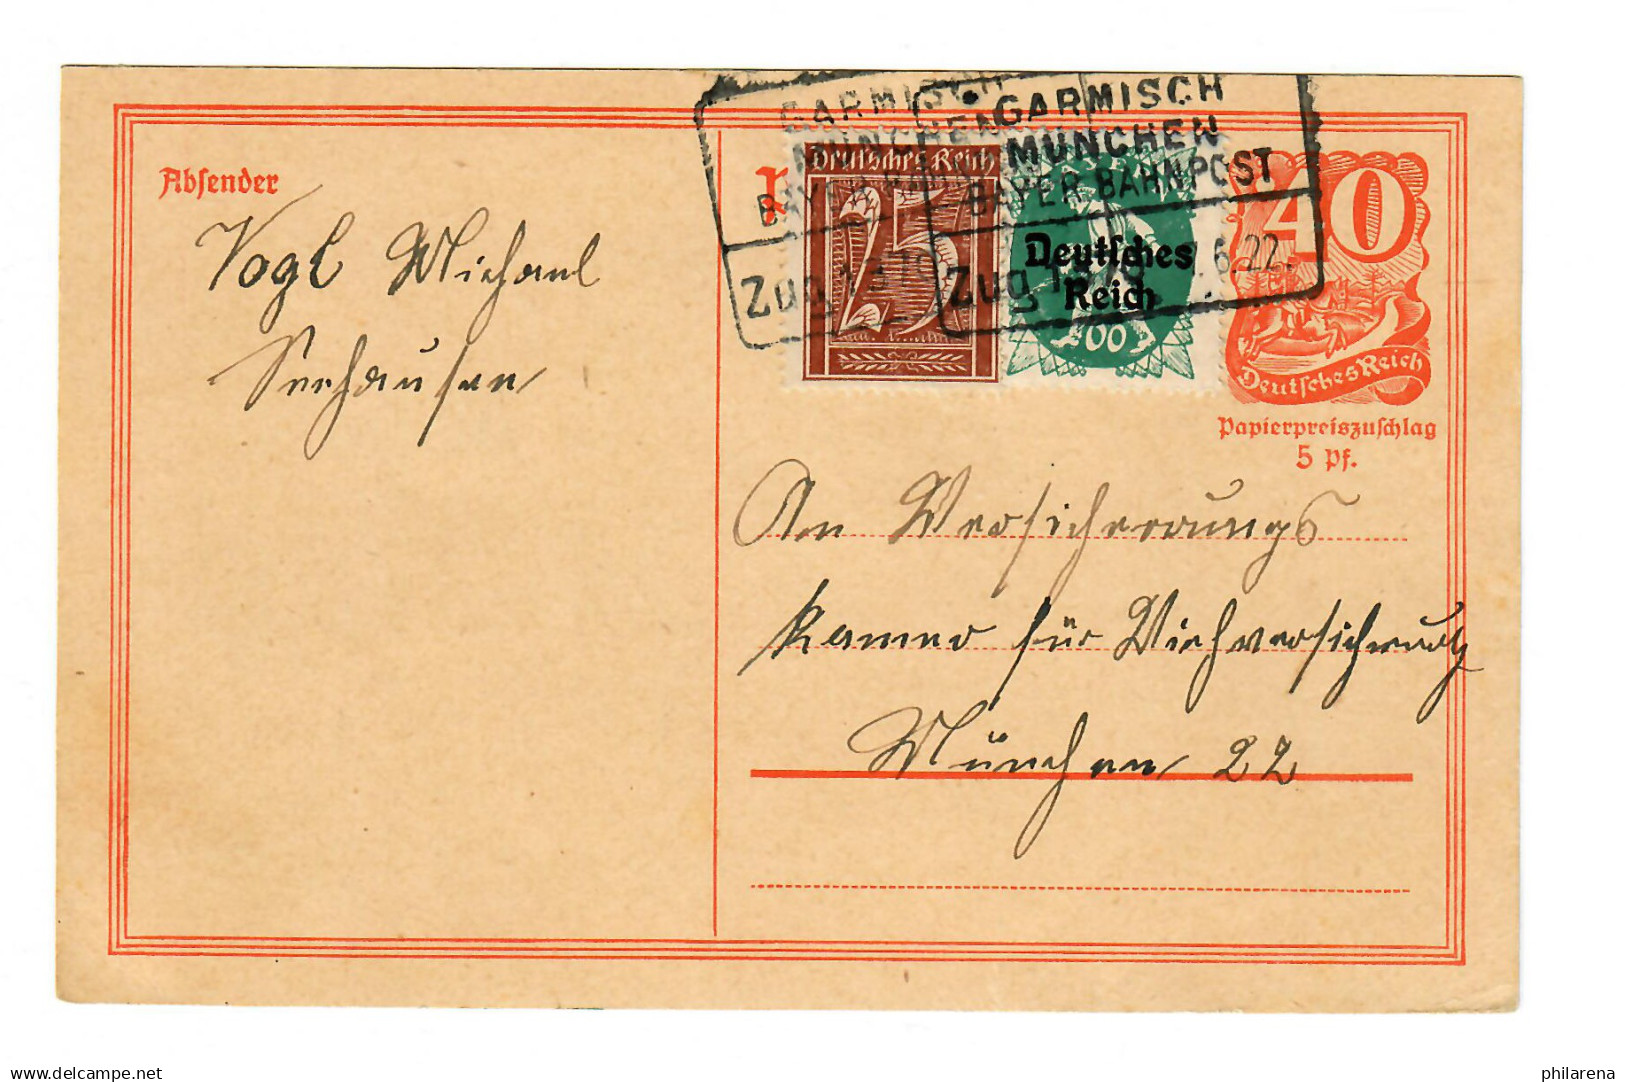 Absender
Vogl Michael
Seehausen
GARMISCH
MÜNCHEN
Zug 137
GARMISCH
MÜNCHEN
BAYER. BAHNPOST
Zug 1
6.22.
Deutsches Reich
25
Deutsches
Reich
40
Deutsches Reich
Papierpreiszuschlag
5 Pf.
An Versicherungs
kammer für Viehversicherung
München 22
delcampe.net
philarena